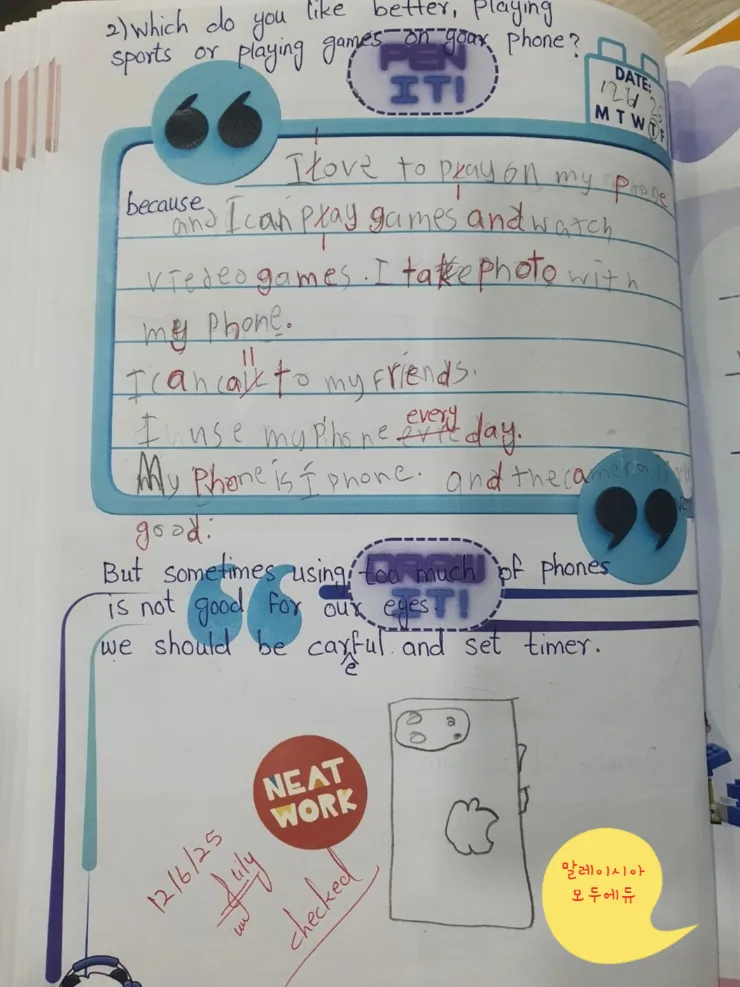 2) Which do you like better, playing
sports or playing games on your phone?
PEN
IT!
DATE:
12/6 25
M T W T F
I love to play on my phone
because
and I can play games and watch
viedeo games. I take photo with
my phone.
I can call to my friends.
I use my phone every day.
My Phone is I phone. and the camera
good.
But sometimes using too much of phones
DRAW
is not good for our eyes.
IT!
we should be careful and set timer.
NEAT
WORK
12/6/25
Lily
checked
말레이시아
모두에듀